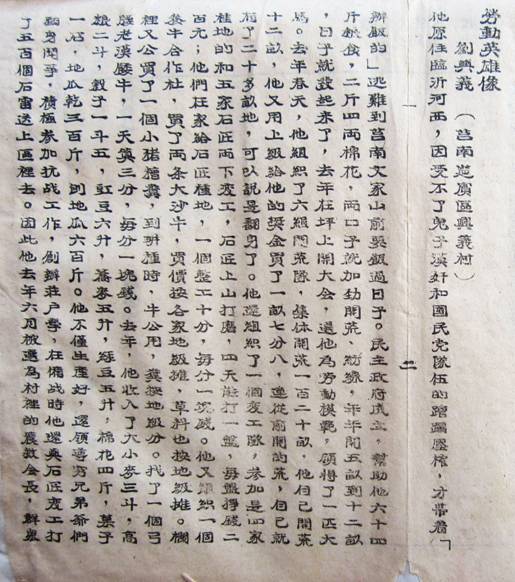 勞動英雄像
劉興義 （莒南筵賓區興義村）
他原住臨沂河西，因受不了鬼子漢奸和國民党隊伍的蹧蹋壓榨，才帶着「
辦飯的」逃難到莒南文家山前吳報過日子。民主政府成立，幫助他六十四
斤粮食，二斤四兩棉花，兩口子就加劲開荒、紡線，年年開五畝到十二畝
，日子就發起來了，去年在坪上開大会，選他為勞動模範，領得了一匹大
馬。去年春天，他組織了六組開荒隊，集体開荒一百二十畝，他自己開荒
十二畝，他又用上級給他的獎金買了一畝七分八，連從前開的荒，自己就
有了二十多畝地，可以說是翻身了。他還組織了一個变工隊，参加是四家
種地的和五家石匠两下变工，石匠上山打磨，四天能打一盤，每盤掙錢二
百元；他們在家給石匠種地，一個整工十分，每分一塊錢。他又組織一個
養牛合作社，買了两条大沙牛，買價按各家地級攤，草料也按地級攤。欄
裡又公買了一個小猪攢糞，到耕種時，牛公用，糞按地級分。找了一個弓
腰老漢餵牛，一天算三分，每分一塊錢。去年，他收入了大小麥三斗，高
粮二斗，穀子一斗五，豇豆六升，蕎麥五升，綠豆五升，棉花四斤，菓子
一石，地瓜乾三百斤，剩地瓜六百斤。他不僅生產好，還領導窮兄弟爺們
翻身鬧爭，積極參加抗战工作，創辦莊戶學，在備战時他還與石匠变工打
了五百個石雷送上區裡去。因此他去年六月被選為村裡的農救会長，群眾